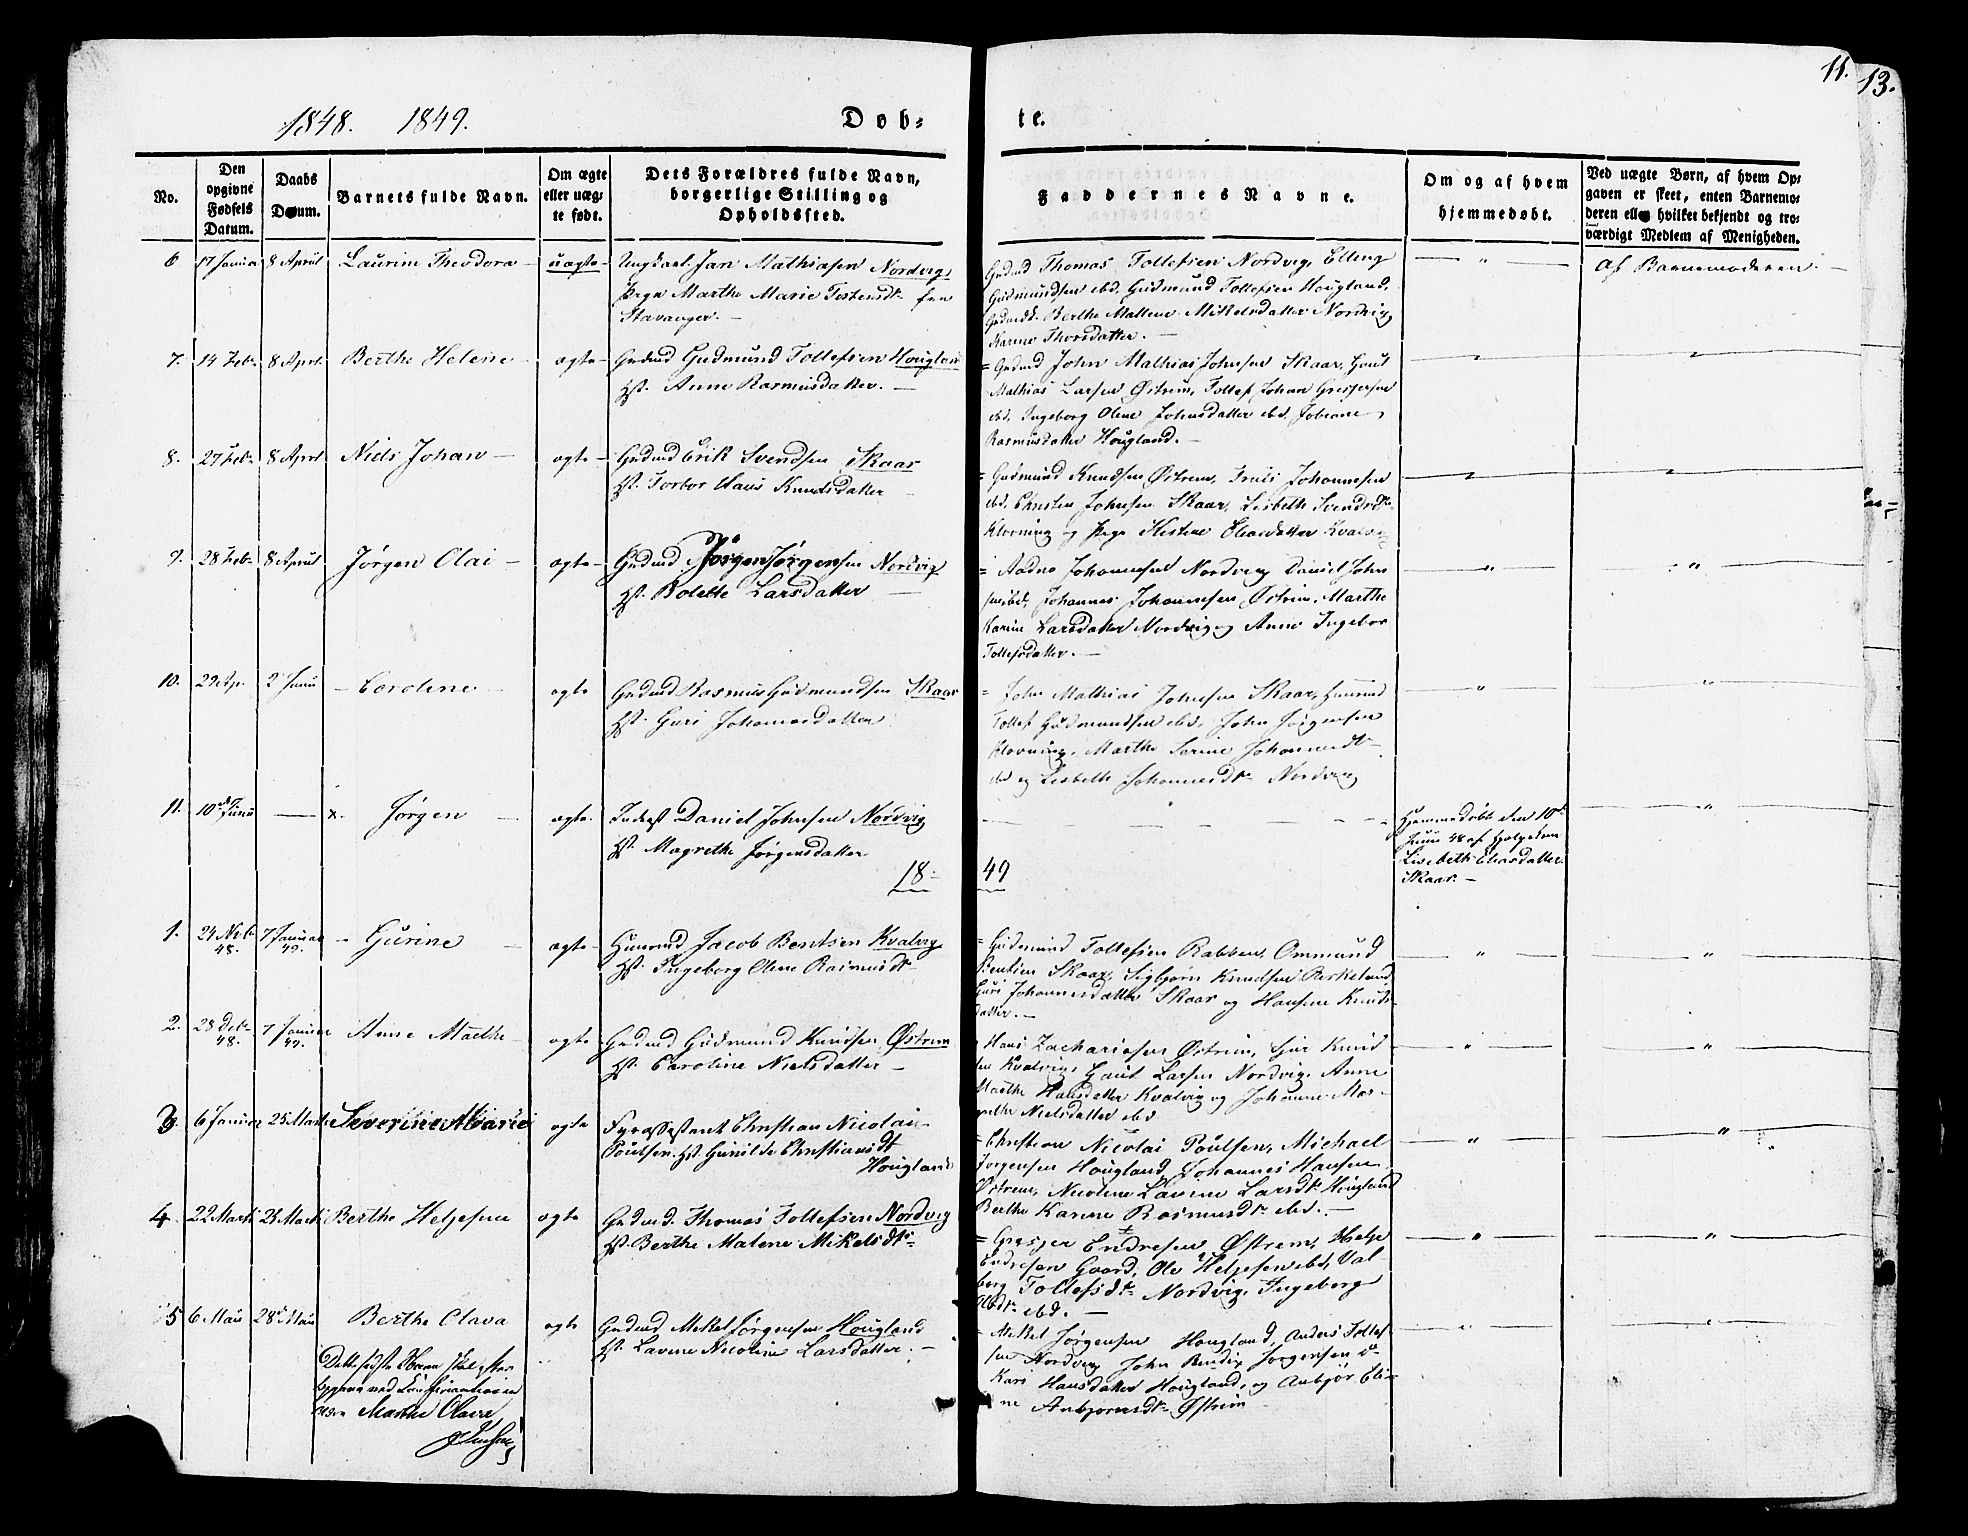 11.
13.
1848. 1849.
Døb-
te.
No.
Den opgivne Fødsels Datum.
Daabs Datum.
Barnets fulde Navn.
Om ægte eller uægte født.
Dets Forældres fulde Navn, borgerlige Stilling og Opholdssted.
Faddernes Navne.
Om og af hvem hjemmedøbt.
Ved uægte Børn, af hvem Opgaven er skeet, enten Barnemoderen eller hvilket bekjendt og troværdigt Medlem af Menigheden.
6 17 Januar 8 April Laurine Theodora uægte Ungkarl Jan Mathiasen Nordvig
Pige Marthe Marie Tostensdt. fra
Stavanger.
Grdmd Thomas Tollefsen Nordvig, Elling
Gudmundsen ibd. Gudmund Tollefsen Hougland,
Berthe Mallene Mikelsdatter Nordvig
Thorsdatter.
" Af Barnemoderen.
7. 14 Feb. 8 Aprl. Berthe Helene ægte Grdmd Gudmund Tollefsen Hougland
Hst. Anne Rasmusdatter.
Grdmd John Mathias Johnsen Skaar, Gaut
Mathias Larsen Østrem, Tollef Johan Gresjersen
ibd. Ingeborg Olene Johnsdatter ibd.
Rasmusdatter Hougland.
8. 27 Feb. 8 Aprl Niels Johan ægte Grdmd Erik Svendsen Skaar
Hst. Knudsdatter
Gudmund Knudsen Østrem, Johannesen
ibd. Christen Johnsen Skaar, Lisbeth Svendsdt.
Klovning og Pige Eliasdatter Kvalvig
9. 28 Feb. 8 April Jørgen Olai ægte Grdmd Jørgen Jørgensen Nordvig
Hst. Bolette Larsdatter
Aadne Johannesen Nordvig Daniel John
sen ibd, Johannes Johannesen Østrem. Marthe
Karine Larsdatter Nordvig og Anne Ingebor
Tollefsdatter.
10. 29 Ap. 2 Juni Caroline ægte Grdmd Rasmus Gudmundsen Skaar
Hst. Guri Johannesdatter
John Mathias Johnsen Skaar,
Tollef Gudmundsen ibd, John Jørgensen
Klovning, Marthe Serine Johannesdt.
ibd og Lisbeth Johannesdt. Nordvig
11. 10 Juni x. Jørgen ægte. Inderst Daniel Johnsen Nordvig
Hst. Magrethe Jørgensdatter
Hjemmedøbt den 10de
Juni 48 af
Lisebeth Eliasdatter
Skaar.
18 49
1. 24 Nvb. 48. 7 Januar 49. Gurine ægte Jacob Bentsen Kvalvig
Hst. Ingeborg Olene Rasmusdt.
Gudmund Tollefsen Rabben, Ommund
Bentsen Skaar, Sigbjørn Knudsen Birkeland
Guri Johannesdatter Skaar og Hansine Knuds
datter.
2. 28 Deb. 48. 7 Januar 49. Anne Marthe ægte Grdmd Gudmund Knudsen Østrem
Hst. Caroline Nielsdatter
Hans Zachariasen Østrem, Sjur Knud
sen Kvalvig, Gaut Larsen Nordvig, Anne
Marthe Hansdatter Kvalvig og Johanne Mar
grethe Nielsdatter ibd
3. 6 Januar 25 Marts Severine Marie ægte Fyrassistent Christian Nicolai
Poulsen. Hst. Gunilde Christiansdt
Hougland
Christian Nicolai Poulsen, Michael
Jørgensen Hougland, Johannes Hansen
Østrem, Nicoline Lavine Larsdt. Hougland
Berthe Karine Rasmusdt. ibd.
4. 22 Marts 25 Marts Berthe Heljesine ægte Grdmd. Thomas Tollefsen Nordvig
Hst. Berthe Malene Mikelsdt.
Gresjer Endresen Østrem, Helje
Endresen Gaard, Ole Heljesen ibd, Val
borg Tollefsdt. Nordvig, Ingeborg
Olsdt. ibd.
5 6 Mai 28de Mai Berthe Olava ægte Grdmd Mikel Jørgensen Hougland
Hst. Lavine Nicoline Larsdatter.
Mikel Jørgensen Hougland, Anders Tollef
sen Nordvig John Bendix Jørgensen
Kari Hansdatter Hougland, og Anbjør Eli
ne Anbjørnsdt. Østrem
Dette sidste Barn
ved Konfirmationen
Marthe Olava